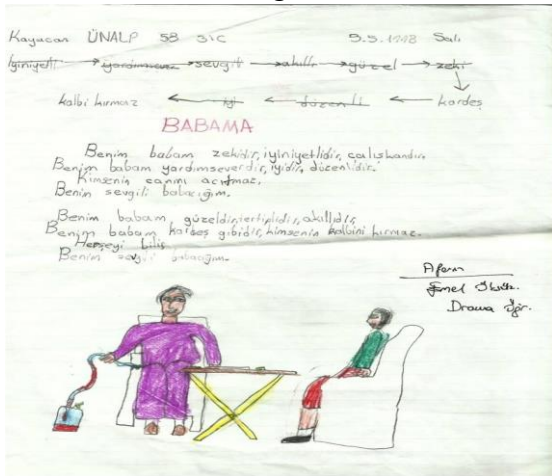 Kayacan ÜNALP 58 3/C 5.5.1998 Salı
İyiniyetli yardımsever sevgili akıllı güzel zeki
kalbi kırmaz iyi düzenli kardeş
BABAMA
Benim babam zekidir, iyiniyetlidir, çalışkandır,
Benim babam yardımseverdir, iyidir, düzenlidir.
Kimsenin canını acıtmaz.
Benim sevgili babacığım.
Benim babam güzeldir, tertiplidir, akıllıdır,
Benim babam kardeş gibidir, kimsenin kalbini kırmaz.
Herşeyi bilir
Benim sevgili babacığım.
Aferin
Drama Öğr.